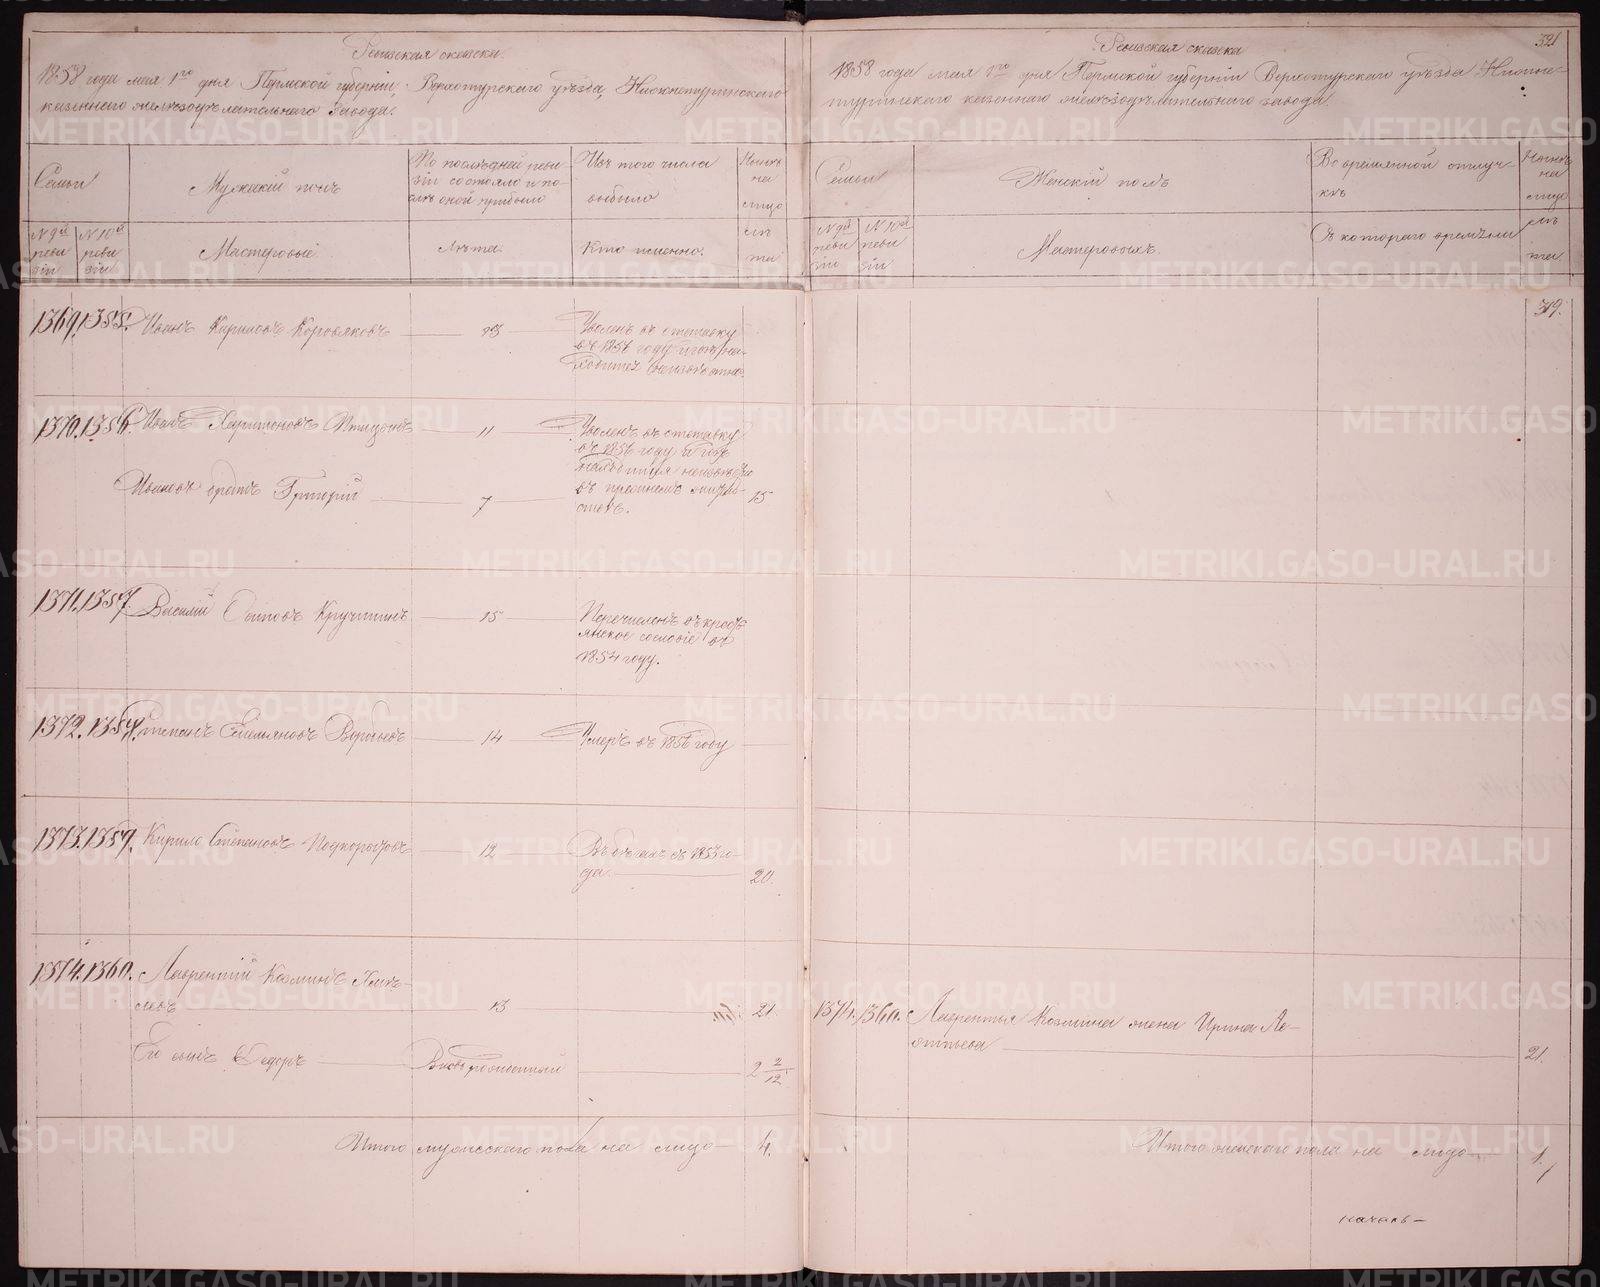 Ревизская сказка
1858 года мая 1го дня Пермской губернии, Верхотурского уѣзда, Нижнетуринскаго
казеннаго желѣзодѣлательнаго завода.
Семьи
Мужеский полъ
По последней реви
зіи состояло и по-
слѣ оной прибыло
Изъ того числа
выбыло
Нынѣ
на
лицо
№ 9й
реви
зіи
№ 10й
реви
зіи
Мастеровые.
Лѣта.
Кто именно.
лѣ
та
1369. 1355. Иванъ Кириловъ Коровяковъ 23 Уволенъ въ отставку
въ 1857 году и гдѣ на-
ходится неизвѣстно.
1370. 1356. Иванъ Харитоновъ Птицынъ 11 Уволенъ въ отставку
въ 1856 году и гдѣ
находится неизвѣстно
Ивановъ братъ Григорій 7 15
1371. 1357. Василій Осиповъ Кручининъ 15 Перечисленъ въ кресть-
янское сословіе въ
1854 году.
1372. 1358. Степанъ Емельяновъ Воробьевъ 14 Умеръ въ 1856 году
1373. 1359. Кирило Степановъ Подкорытовъ 12 Въ бѣгахъ съ 1853 го-
да. 20.
1374. 1360. Лаврентій Козминъ
левъ 13 21.
Его сынъ Федоръ Вновь рожденный 2 2/12
Итого мужескаго пола на лицо 4.
321
Ревизская сказка
1858 года мая 1го дня Пермской губерніи Верхотурскаго уѣзда Нижне-
туринскаго казеннаго желѣзодѣлательнаго завода.
Семьи
Женскій полъ
Во временной отлуч-
кѣ
Нынѣ
на
лицо
№ 9й
реви
зіи
№ 10й
реви
зіи
Мастеровыхъ.
Съ котораго времѣни
лѣ
та
319.
1374. 1360. Лаврентья Козмина жена Ирина Ле-
онтьева 21.
Итого женскаго пола на лицо 1.
1
METRIKI.GASO-URAL.RU